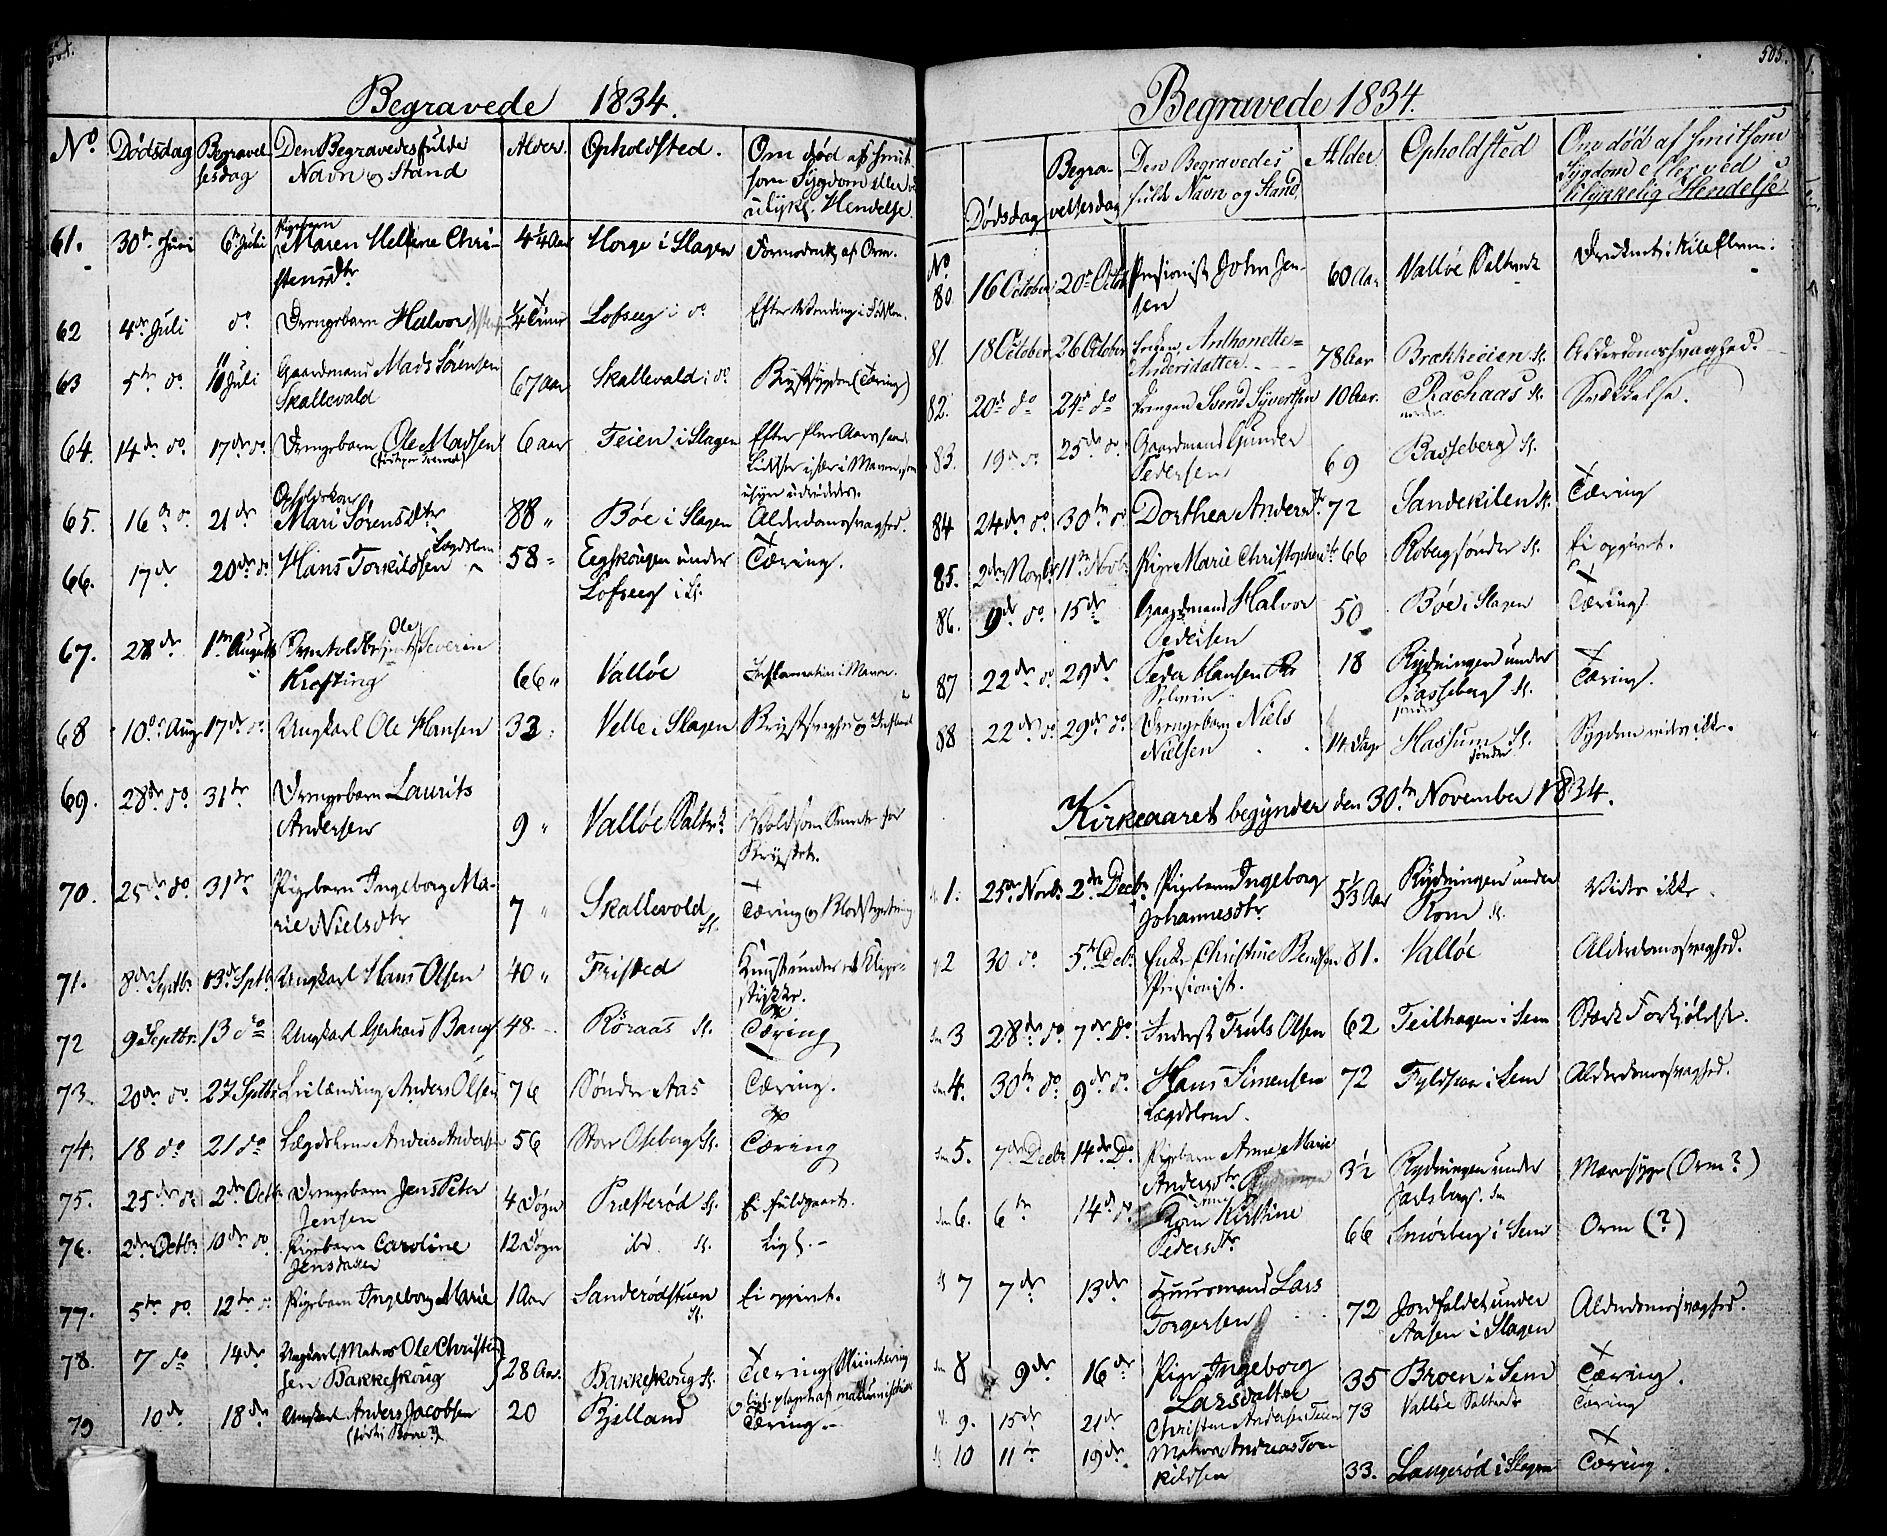 505.
Begravede 1834.
No. Dødsdag Begravelsesdag Den Begravedes fulde Navn og Stand Alder. Opholdsted. Om død af smitsom Sygdom eller ved ulykl. Hendelse.
61. 30te Juni 6te Juli Pigebarn Maren Hellene Christensdtr 4¼ Aar Horge i Slagen Formodentl. af Orm.
62 4de Juli do Drengebarn Halvor Lofseeg i do
63 5te do 10 Juli Gaardmand Mads Sørensen Skallevald 67 Aar Skallevald i do Brystsygdom (Tæring)
64. 14de do 17de do Drengebarn Ole Madsen 6 aar Feien i Slagen Efter flere Aars
65. 16de do 21de Mari Sørensdtr 88 " Bøe i Slagen Alderdomssvaghed.
66. 17de 20de do Hans Torkildsen Lægdslem 58 " Eegskougen under Lofseeg i Sl. Tæring.
67. 28de 1te August Ole Severin Krofting 66 " Valløe Inflamation i Maven.
68 10de Aug. 17de do Ungkarl Ole Hansen 33 Velle i Slagen
69. 28de do 31te Drengebarn Laurits Andersen 9 " Valløe Saltv. Voldsom Smerte for Brystet.
70. 25de do 31te Pigebarn Ingeborg Marie Nielsdtr 7 " Skallevold Sl. Tæring og Blodstyrtning
71. 8de Septbr 13de Septbr Ungkarl Hans Olsen 40 " Fristed
72 9 Septbr. 13 do Ungkarl Gerhard Bang 48. Røraas Sl. Tæring
73. 20de do 27 Septbr Anders Olsen 76 Søndre Aas Tæring.
74. 18 do 21 do Lægdslem Anders Andersen 56 Store Oseberg Sl. Tæring
75. 25de do 2den Octbr Drengebarn Jens Peter Jensen 4 Døgn Præsterød Sl. Ei fuldbaart.
76. 2den Octbr 10de do Pigebarn Caroline Jensdatter 12 Døgn ibd. Sl. Lig.
77. 5te do 12te do Pigebarn Ingeborg Marie 1 Aar Sanderødstuen Sl. Ei opgivet.
78. 7 do 14de Ungkarl, Matros Ole Christensen Bakkeskoug 28 Aar. Bakkeskoug Sl. Tæring
79 10de 18de Ungkarl Anders Jacobsen 20 Bjelland Tæring.
Begravede 1834.
No Dødsdag Begravelsesdag Den Begravedes fulde Navn og Stand, Alder. Opholdsted Om død af smitsom Sygdom eller ved Ulykkelig Hendelse
80. 16 October 20de Octob. Pensionist John Jensen 60 Aar Valløe Saltverk
81. 18 October 26 October Anthonette Andersdatter. 78 Aar Brækkeøien Sl. Alderdomssvaghed.
82. 20de do 24de do Drengen Svend Syvertsen 10 Aar. Rachaas Sl. nordre Svækkelse.
83. 19de do 25de do Gaardmand Gunder Pedersen 69 Basseberg Sl.
84 24de do 30te do Dorthea Andersdtr. 72 Sandekilen Sl. Tæring
85. 2de Novbr 11te Novbr Pige Marie Christophersdtr 66 Roberg søndre Sl. Ei opgivet.
86. 9de do 15de Gaardmand Halvor Pedersen 50 Bøe i Slagen Tæring
87 22de do 29de Peder Hansen 18 Rydningen under Basseberg Sl. Tæring.
88 22de do 29de do Drengebarn Niels Nielsen 14 Dage Hassum søndre Sl. Sygdom vides ikke.
Kirkeaaret begynder den 30te November 1834.
1. 25de Novbr. 2den Decbr Pigebarn Ingeborg Johannesdtr 5⅓ Aar Rydningen under Rom Sl. Vides ikke.
2 30 do 5te Decb. Enke Christine Bendsen Pensionist. 81. Valløe Alderdomssvaghed.
3 28de do 7de Do Inderst Truls Olsen 62 Teilhagen i Sem Stærk Forkjølelse.
4. 30te do 9de do. Hans Simensen Lægdslem. 72 Fyldpaa i Sem Alderdomssvaghed.
5. 7de Decbr 14de Do. Pigebarn Anne Marie Andersdtr 3½ Rydningen under Jarlsberg. Sem Mavesyge (Orm?)
6. 6te 14de do. Kone Kirstine Pedersdtr 66 Smørberg i Sem Orm (?)
7 7de 13de Huusmand Lars Torgersen 72 Jordfaldet under Aasen i Slagen Alderdomssvaghed.
8 9de 16de Pige Ingeborg Larsdatter 35 Broen i Sem Tæring.
9. 15de 21de Christen Andersen 73 Valløe Saltverk Tæring
10 11te 19de Matros Andreas Torkildsen 33. Langerød i Slagen Tæring.